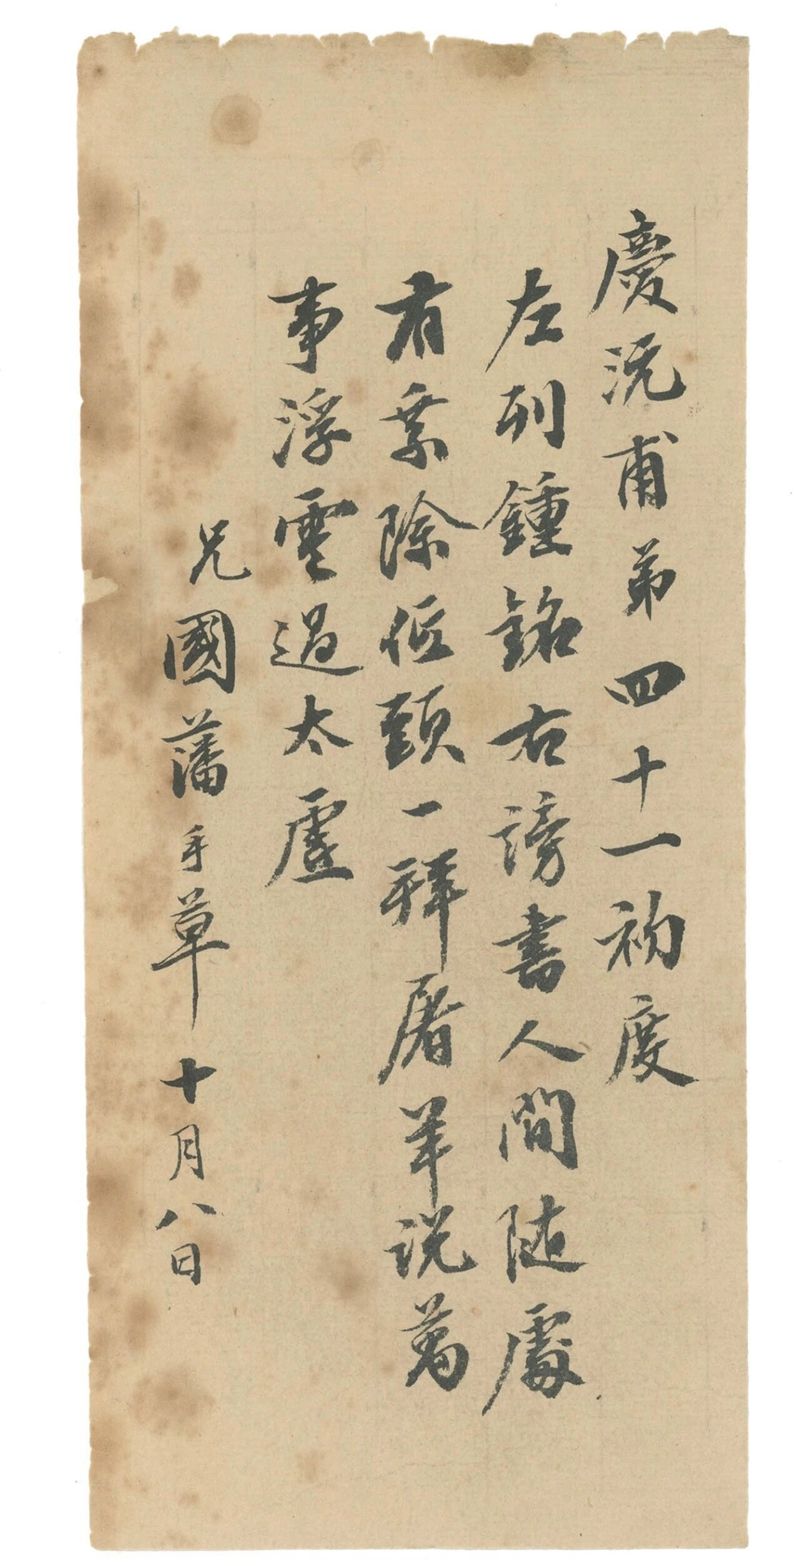 慶沅甫弟四十一初度
左列鍾銘右謗書人間隨處
有乘除低頭一拜屠羊說萬
事浮雲過太虛
兄國藩手草十月八日